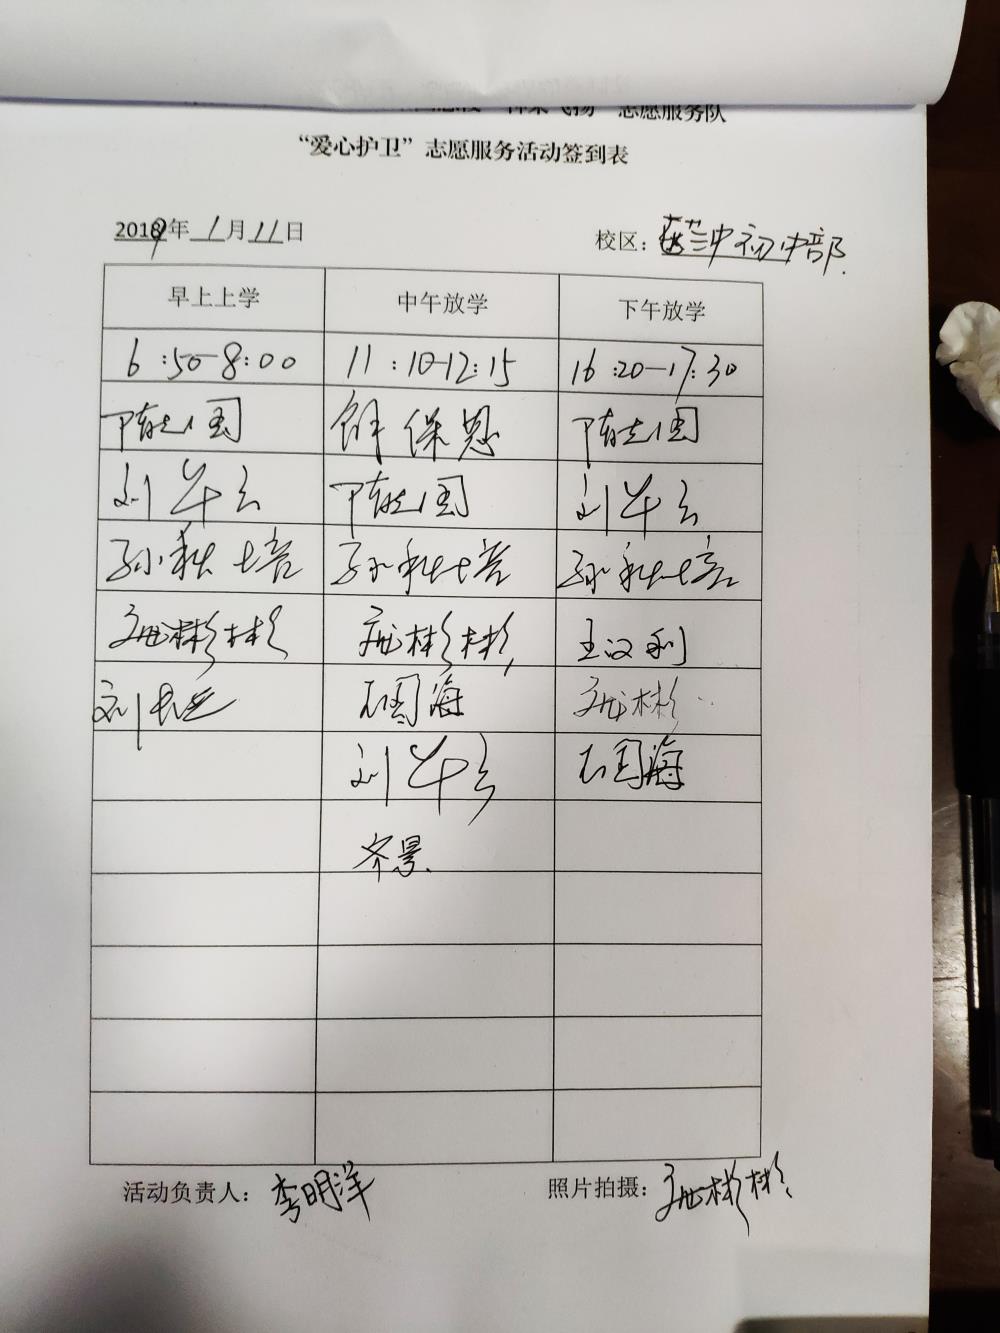 志愿服务队
“爱心护卫”志愿服务活动签到表
2019年 1月11日 校区：三中初中部.
早上上学 中午放学 下午放学
6:50-8:00 11:10-12:15 16:20-17:30
隋志国 保恩 隋志国
刘华云 隋志国 刘华云
孙秋培 孙秋培 孙秋培
彬彬 彬彬 王汉利
刘 石国海 彬
刘华云 石国海
齐景.
活动负责人：李明洋 照片拍摄：彬彬